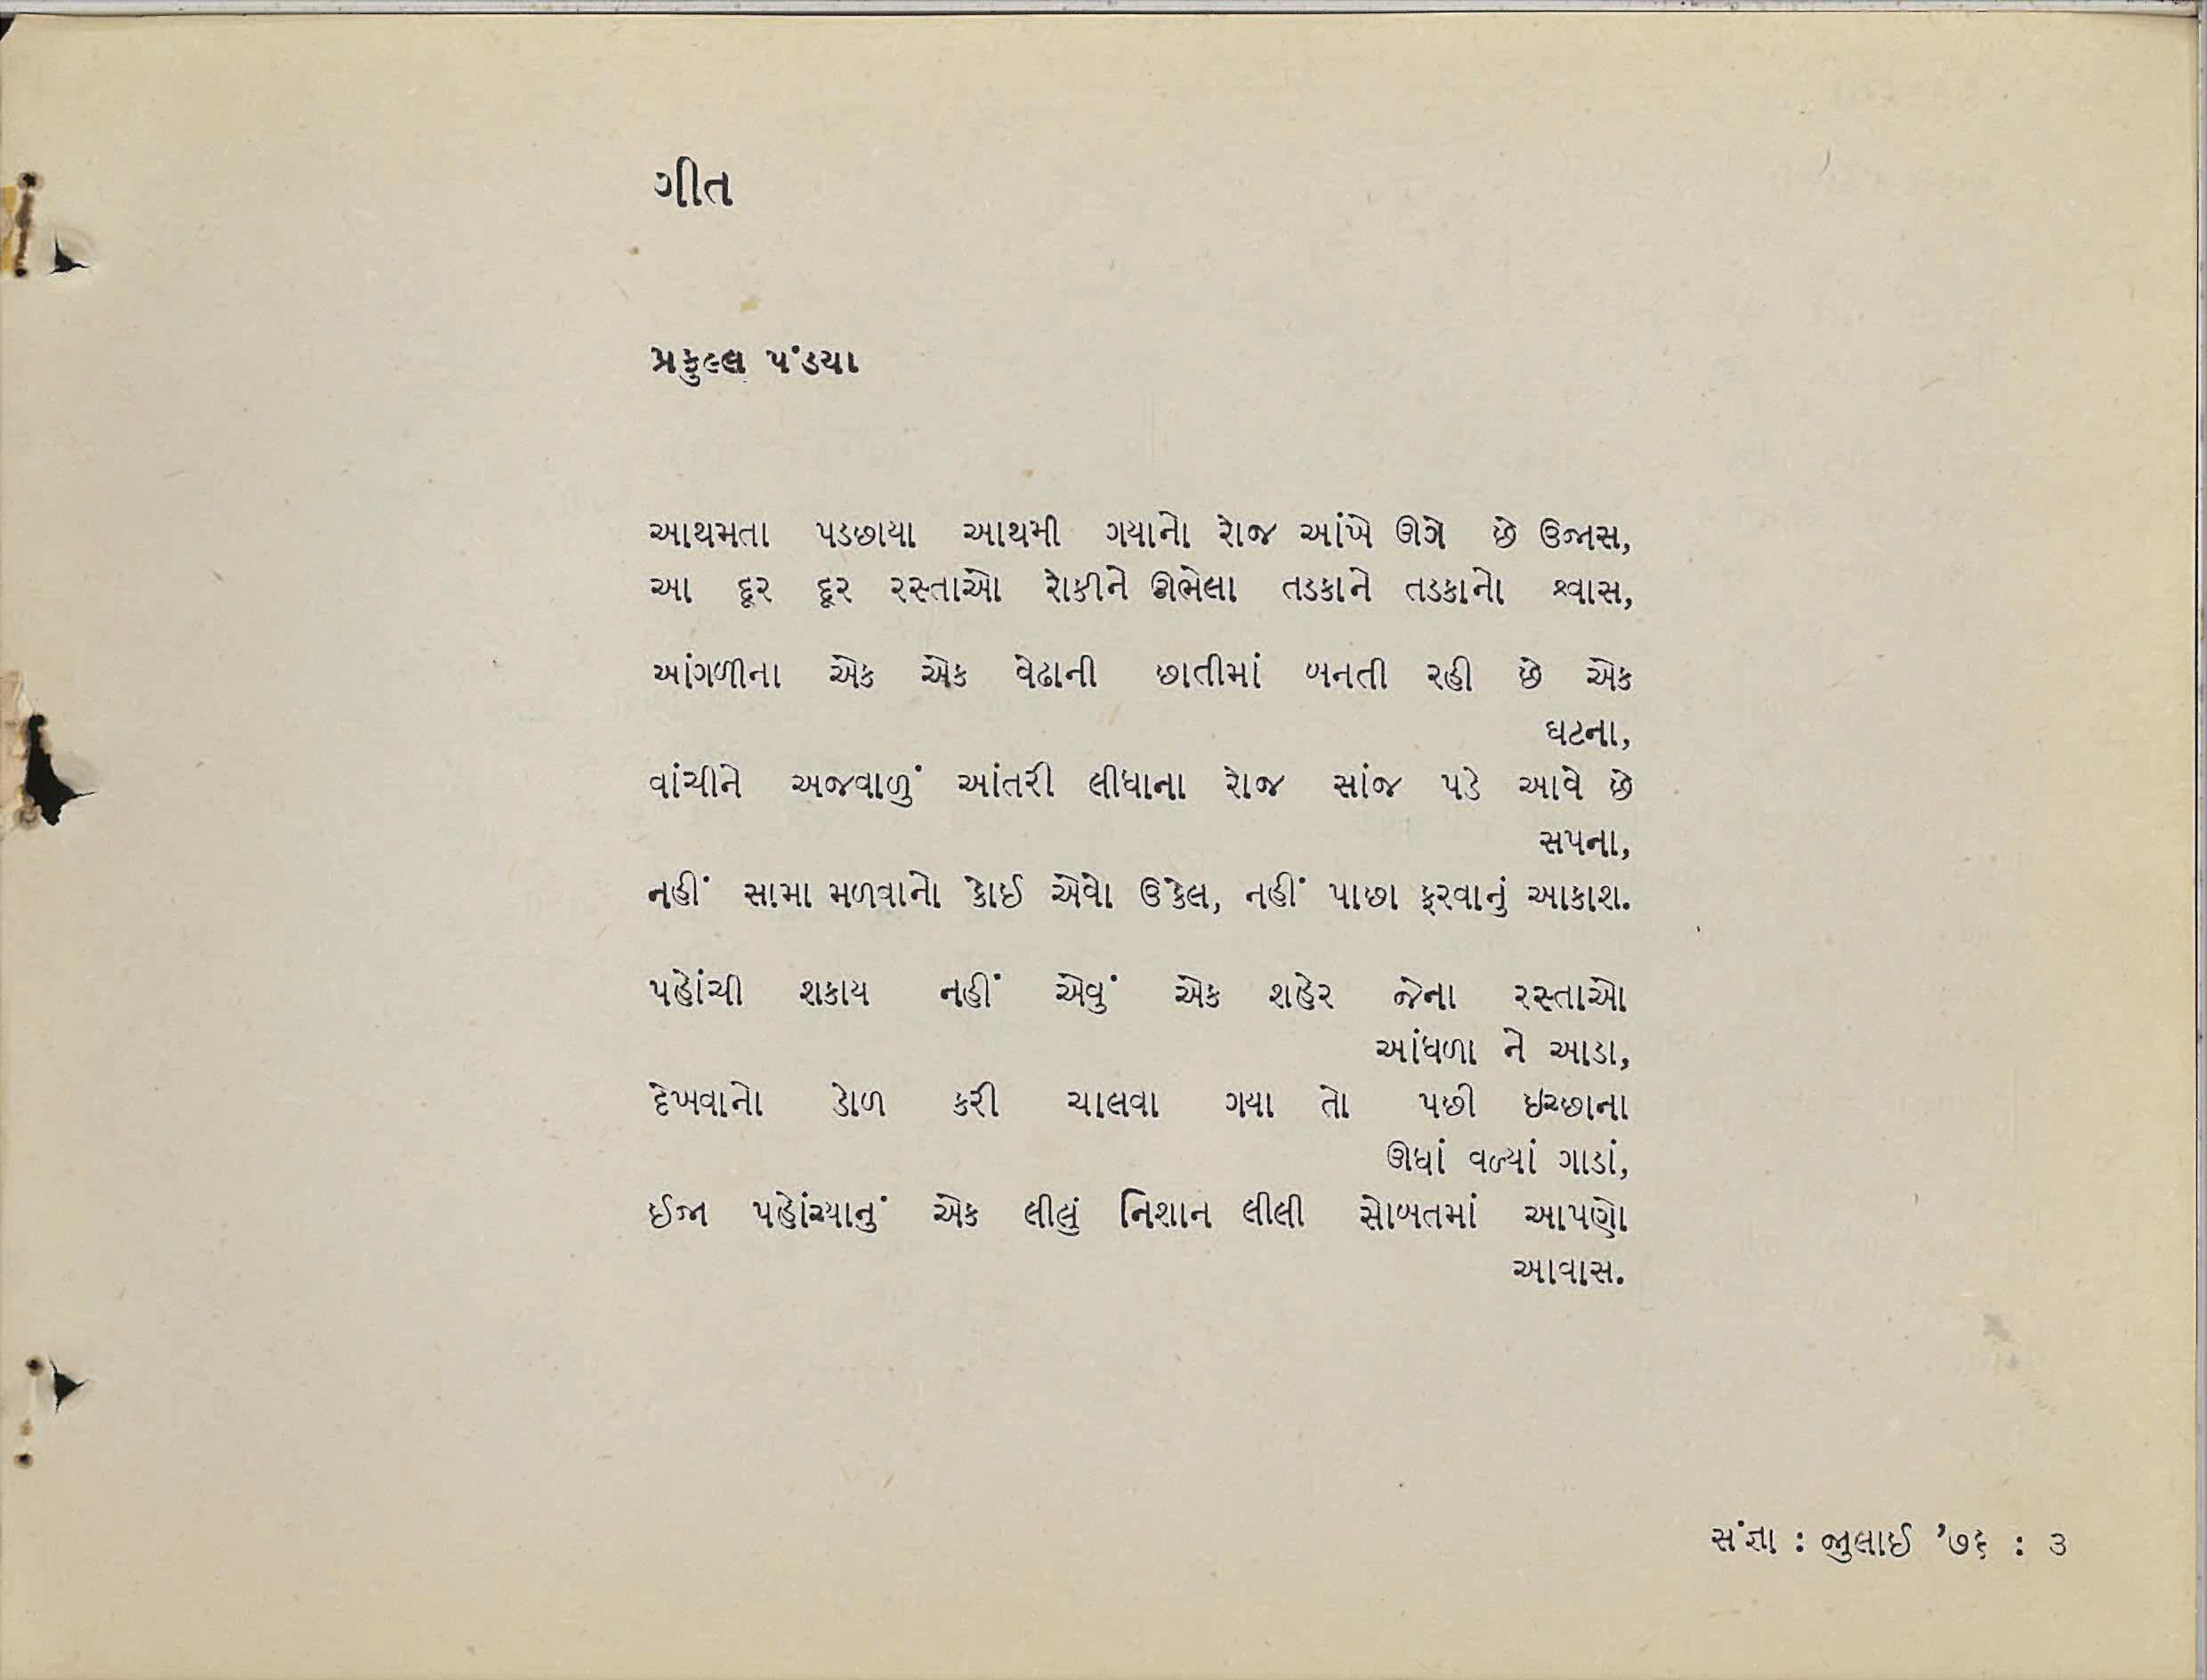 ગીત
પ્રફુલ્લ પંડયા
આથમતા પડછાયા આથમી ગયાનો રોજ આંખે ઊગે છે ઉજાસ,
આ દૂર દૂર રસ્તાઓ રોકીને ઊભેલા તડકાને તડકાનો શ્વાસ,
આંગળીના એક એક વેઢાની છાતીમાં બનતી રહી છે એક
ઘટના,
વાંચીને અજવાળું આંતરી લીધાના રોજ સાંજ પડે આવે છે
સપના,
નહીં સામા મળવાનો કોઈ એવો ઉકેલ, નહીં પાછા ફરવાનું આકાશ.
પહોંચી શકાય નહીં એવું એક શહેર જેના રસ્તાઓ
આંધળા ને આડા,
દેખવાનો ડોળ કરી ચાલવા ગયા તો પછી ઇચ્છાના
ઊધાં વળ્યાં ગાડાં,
ઈજા પહોંચ્યાનું એક લીલું નિશાન લીલી સોબતમાં આપણો
આવાસ.
સંજ્ઞા : જુલાઈ '૭૬ : ૩